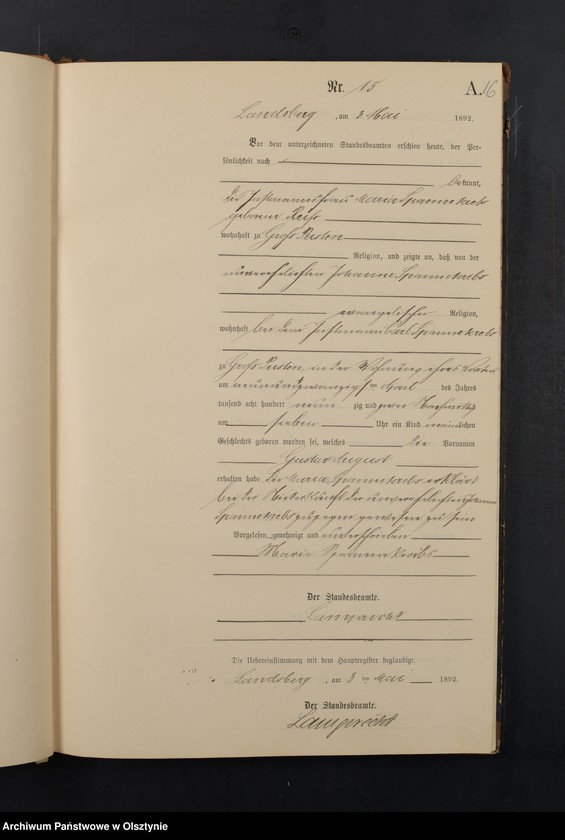 Nr. 15. A. 16
Landsberg, am 3. Mai 1892.
Vor dem unterzeichneten Standesbeamten erschien heute, der Per-
sönlichkeit nach
bekannt,
die Instmannsfrau Maria Spannekrebs
geborene
wohnhaft zu Groß Peisten
Religion, und zeigte an, daß von der
unverehelichten Johanne Spannekrebs
evangelischer Religion,
wohnhaft bei dem Instmann Carl Spannekrebs
zu Groß Peisten, in der Wohnung ihres Vaters
am neunundzwanzigsten April des Jahres
tausend acht hundert neunzig und zwei Nachmittags
um sieben Uhr ein Kind männlichen
Geschlechts geboren worden sei, welches die Vornamen
Gustav August
erhalten habe. Die Maria Spannekrebs erklärt
bei der Niederkunft der unverehelichten Johanne
Spannekrebs zugegen gewesen zu sein
Vorgelesen, genehmigt und unterschrieben
Maria
Der Standesbeamte.
Die Uebereinstimmung mit dem Hauptregister beglaubigt.
Landsberg, am 3ten Mai 1892.
Der Standesbeamte.
Archiwum Państwowe w Olsztynie